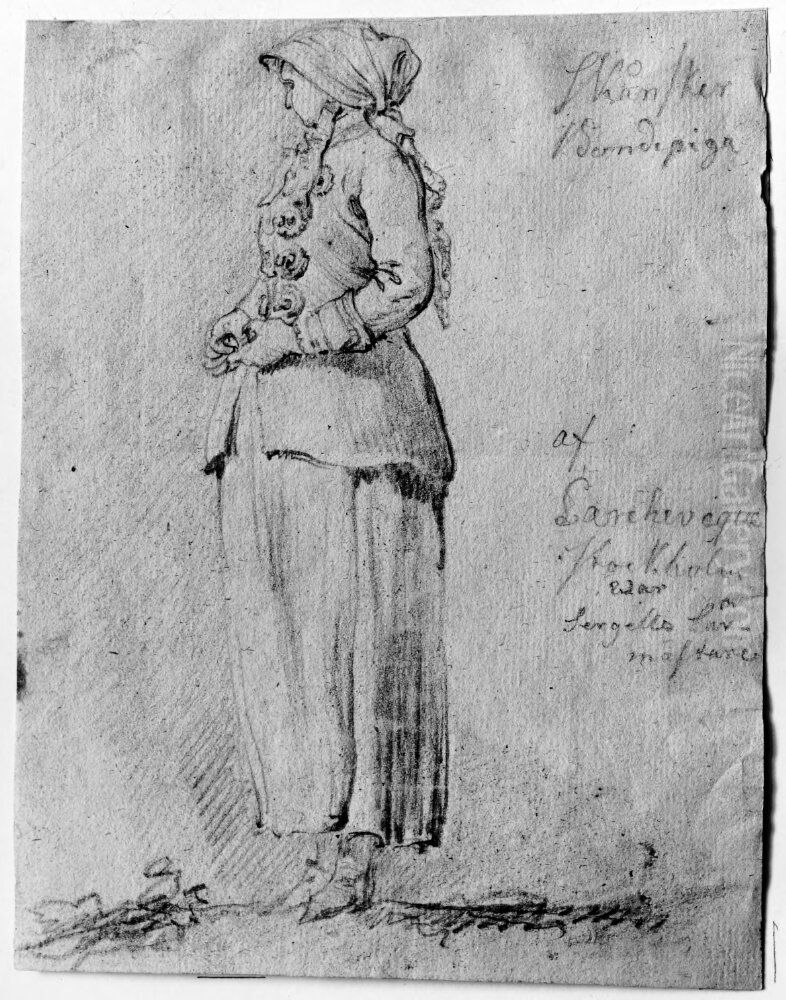 Skånsker
Bondepiga
af
Larcheveque
Stockholm
Sergells Lär-
mästare